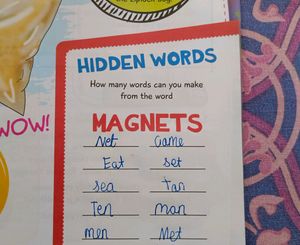 the Elphden Bay.
HIDDEN WORDS
How many words can you make
from the word
WOW!
MAGNETS
Net Game
Eat set
sea Tan
Ten man
men Met